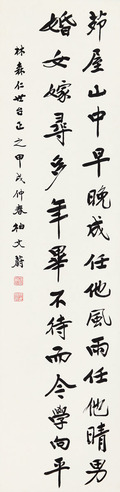 茆屋山中早晚成任他風雨任他晴男
婚女嫁尋多年畢不待而今學向平
林森仁世台正之甲戌仲春柏文蔚